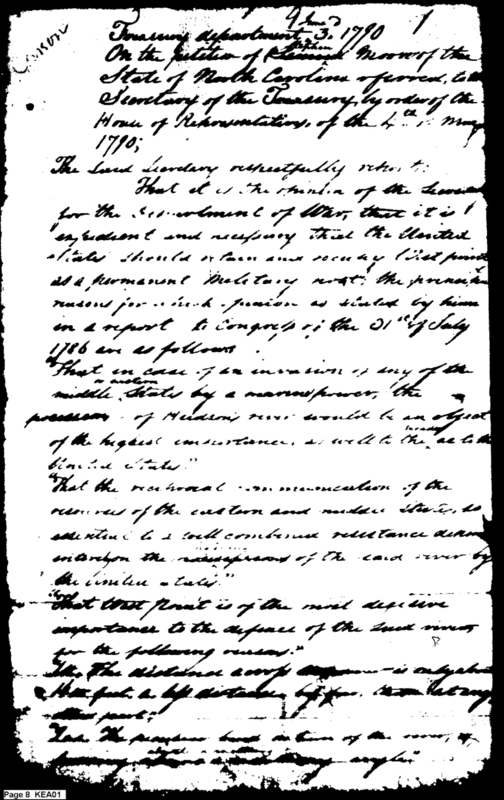 9 June
1
Treasury department 3. 1790
On the petition of Stephen Moore of the
State of North Carolina referred, to the
Secretary of the Treasury, by order of the
House of Representatives, of the 4th
1790;
The said Secretary respectfully reports:
That it is the opinion of the Secretary
for the department of War, that it is
expedient and necessary that the United
States should retain and occupy West point
as a permanent Military post; the principal
reasons for which opinion as stated by him
in a report to Congress of the 31st of July
1786 are as follows
"That in case of an invasion of any of the
middle or eastern States by a marine power, the
possession of Hudsons river would be an object
of the highest importance, as well to the invader as to the
United States."
"That the reciprocal communication of the
resources of the eastern and middle States, so
essential to a well combined resistance
on the possession of the said river by
the United States."
"That West Point is of the most decisive
importance to the defence of the said river,
for the following reasons."
The distance across is only about
feet, a less distance by far, than at any
other part;
The peculiar bend or turn of the river,
forming almost a angle"
Page 8 KEA01